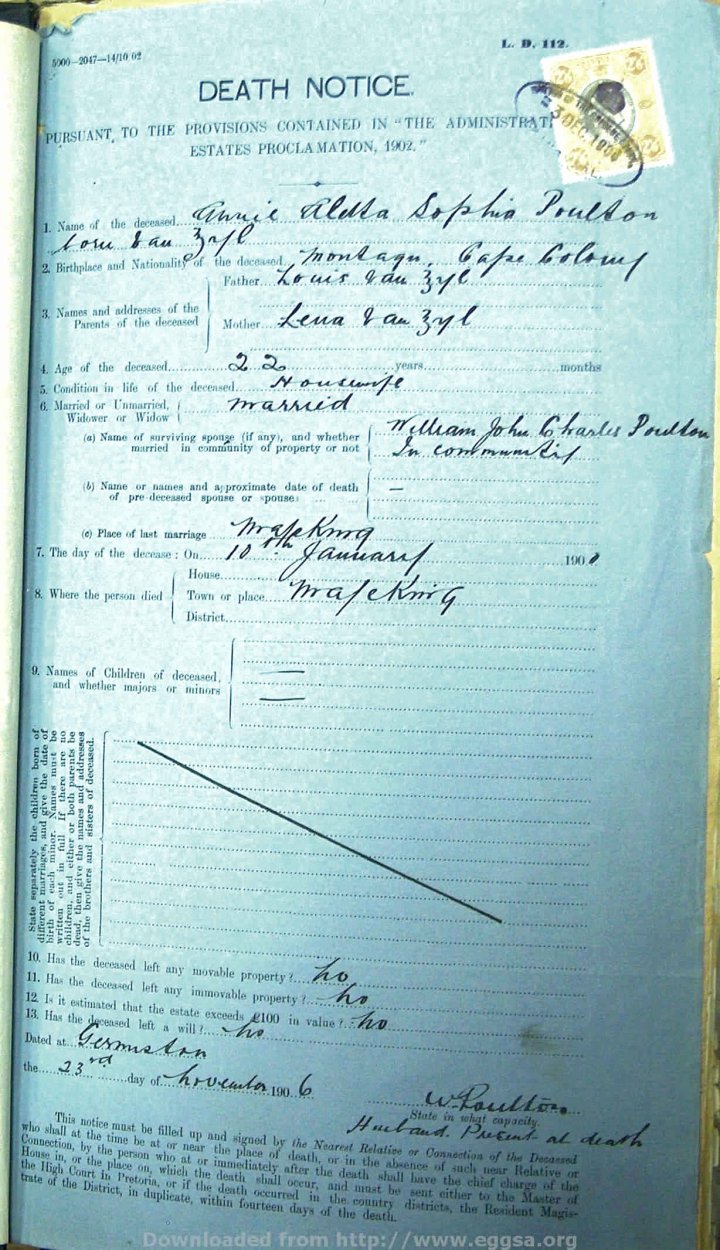 L. D. 112.
5000—2047—14/10 02
DEATH NOTICE.
PURSUANT TO THE PROVISIONS CONTAINED IN "THE ADMINISTRAT
ESTATES PROCLAMATION, 1902."
DEC. 190
1. Name of the deceased Annie Aletta Sophia Poulton
born Van Zyl
2. Birthplace and Nationality of the deceased Montagu, Cape Colony
Father Louis Van Zyl
3. Names and addresses of the
Parents of the deceased
Mother Lena Van Zyl
4. Age of the deceased 22 years months
5. Condition in life of the deceased Housewife
6. Married or Unmarried, Married
Widower or Widow
(a) Name of surviving spouse (if any), and whether William John Charles Poulton
married in community of property or not In community
(b) Name or names and approximate date of death —
of pre-deceased spouse or spouses
(c) Place of last marriage Mafeking
7. The day of the decease: On 10th January 1900
House
8. Where the person died Town or place Mafeking
District
9. Names of Children of deceased, —
and whether majors or minors —
State separately the children born of
different marriages, and give the date of
birth of each minor. Names must be
written out in full. If there are no
children, and either or both parents be
dead, then give the names and addresses
of the brothers and sisters of deceased.
10. Has the deceased left any movable property? no
11. Has the deceased left any immovable property? no
12. Is it estimated that the estate exceeds £100 in value? no
13. Has the deceased left a will? no
Dated at Germiston
the 23rd day of November 1906
W. Poulton
State in what capacity.
Husband. Present at death
This notice must be filled up and signed by the Nearest Relative or Connection of the Deceased
who shall at the time be at or near the place of death, or in the absence of such near Relative or
Connection, by the person who at or immediately after the death shall have the chief charge of the
House in, or the place on, which the death shall occur, and must be sent either to the Master of
the High Court in Pretoria, or if the death occurred in the country districts, the Resident Magis-
trate of the District, in duplicate, within fourteen days of the death.
Downloaded from http://www.eggsa.org